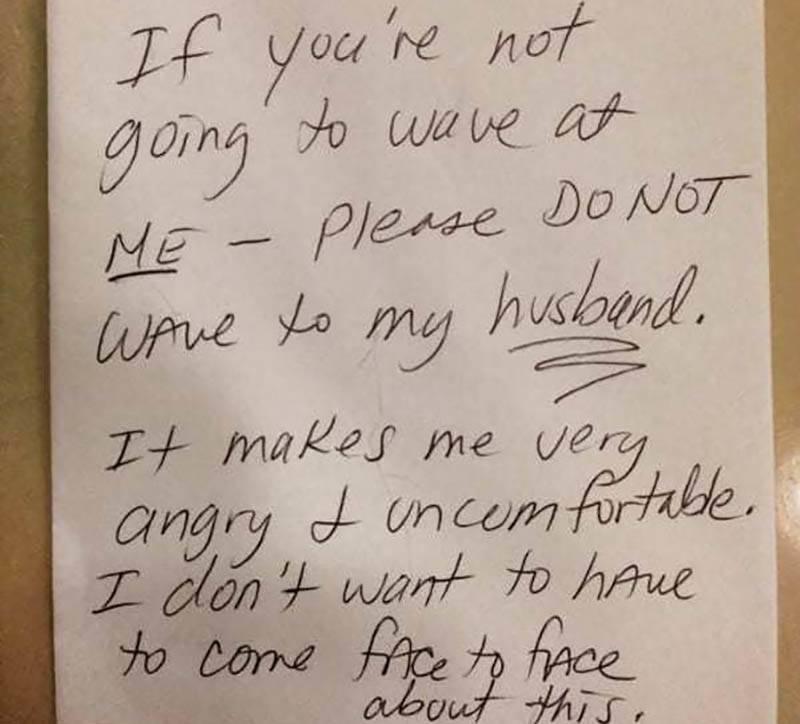 If you're not
going to wave at
ME - Please DO NOT
WAve to my husband.
It makes me very
angry & uncomfortable.
I don't want to hAve
to come fAce to fAce
about this.